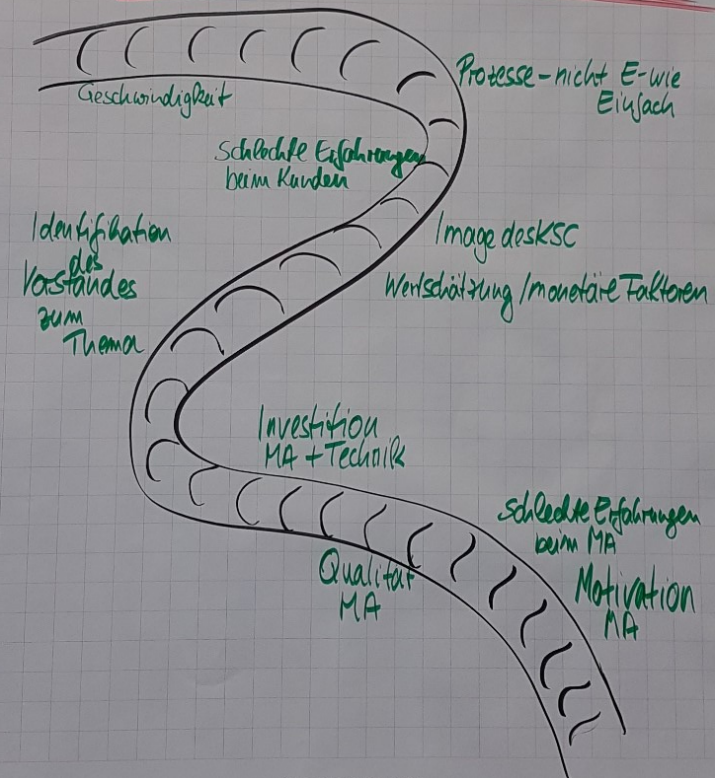 Geschwindigkeit
Prozesse - nicht E-wie
Einfach
Schlechte Erfahrungen
beim Kunden
Identifikation
des
Vorstandes
zum
Thema
Image des KSC
Wertschätzung / monetäre Faktoren
Investition
MA + Technik
Schlechte Erfahrungen
beim MA
Qualität
MA
Motivation
MA